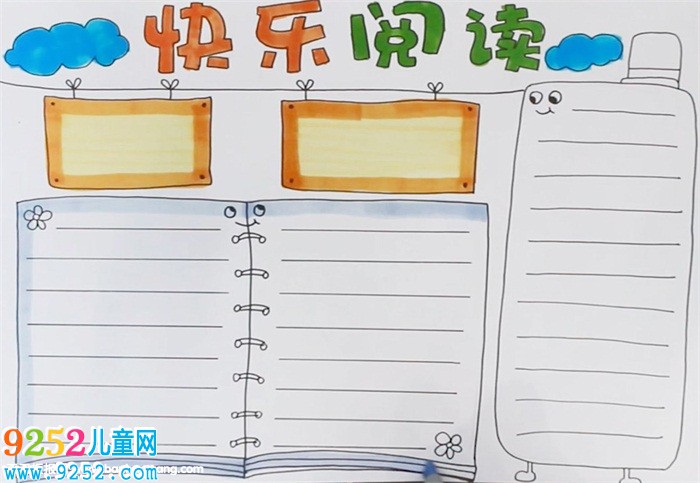 快乐阅读
9252儿童网
www.9252.com